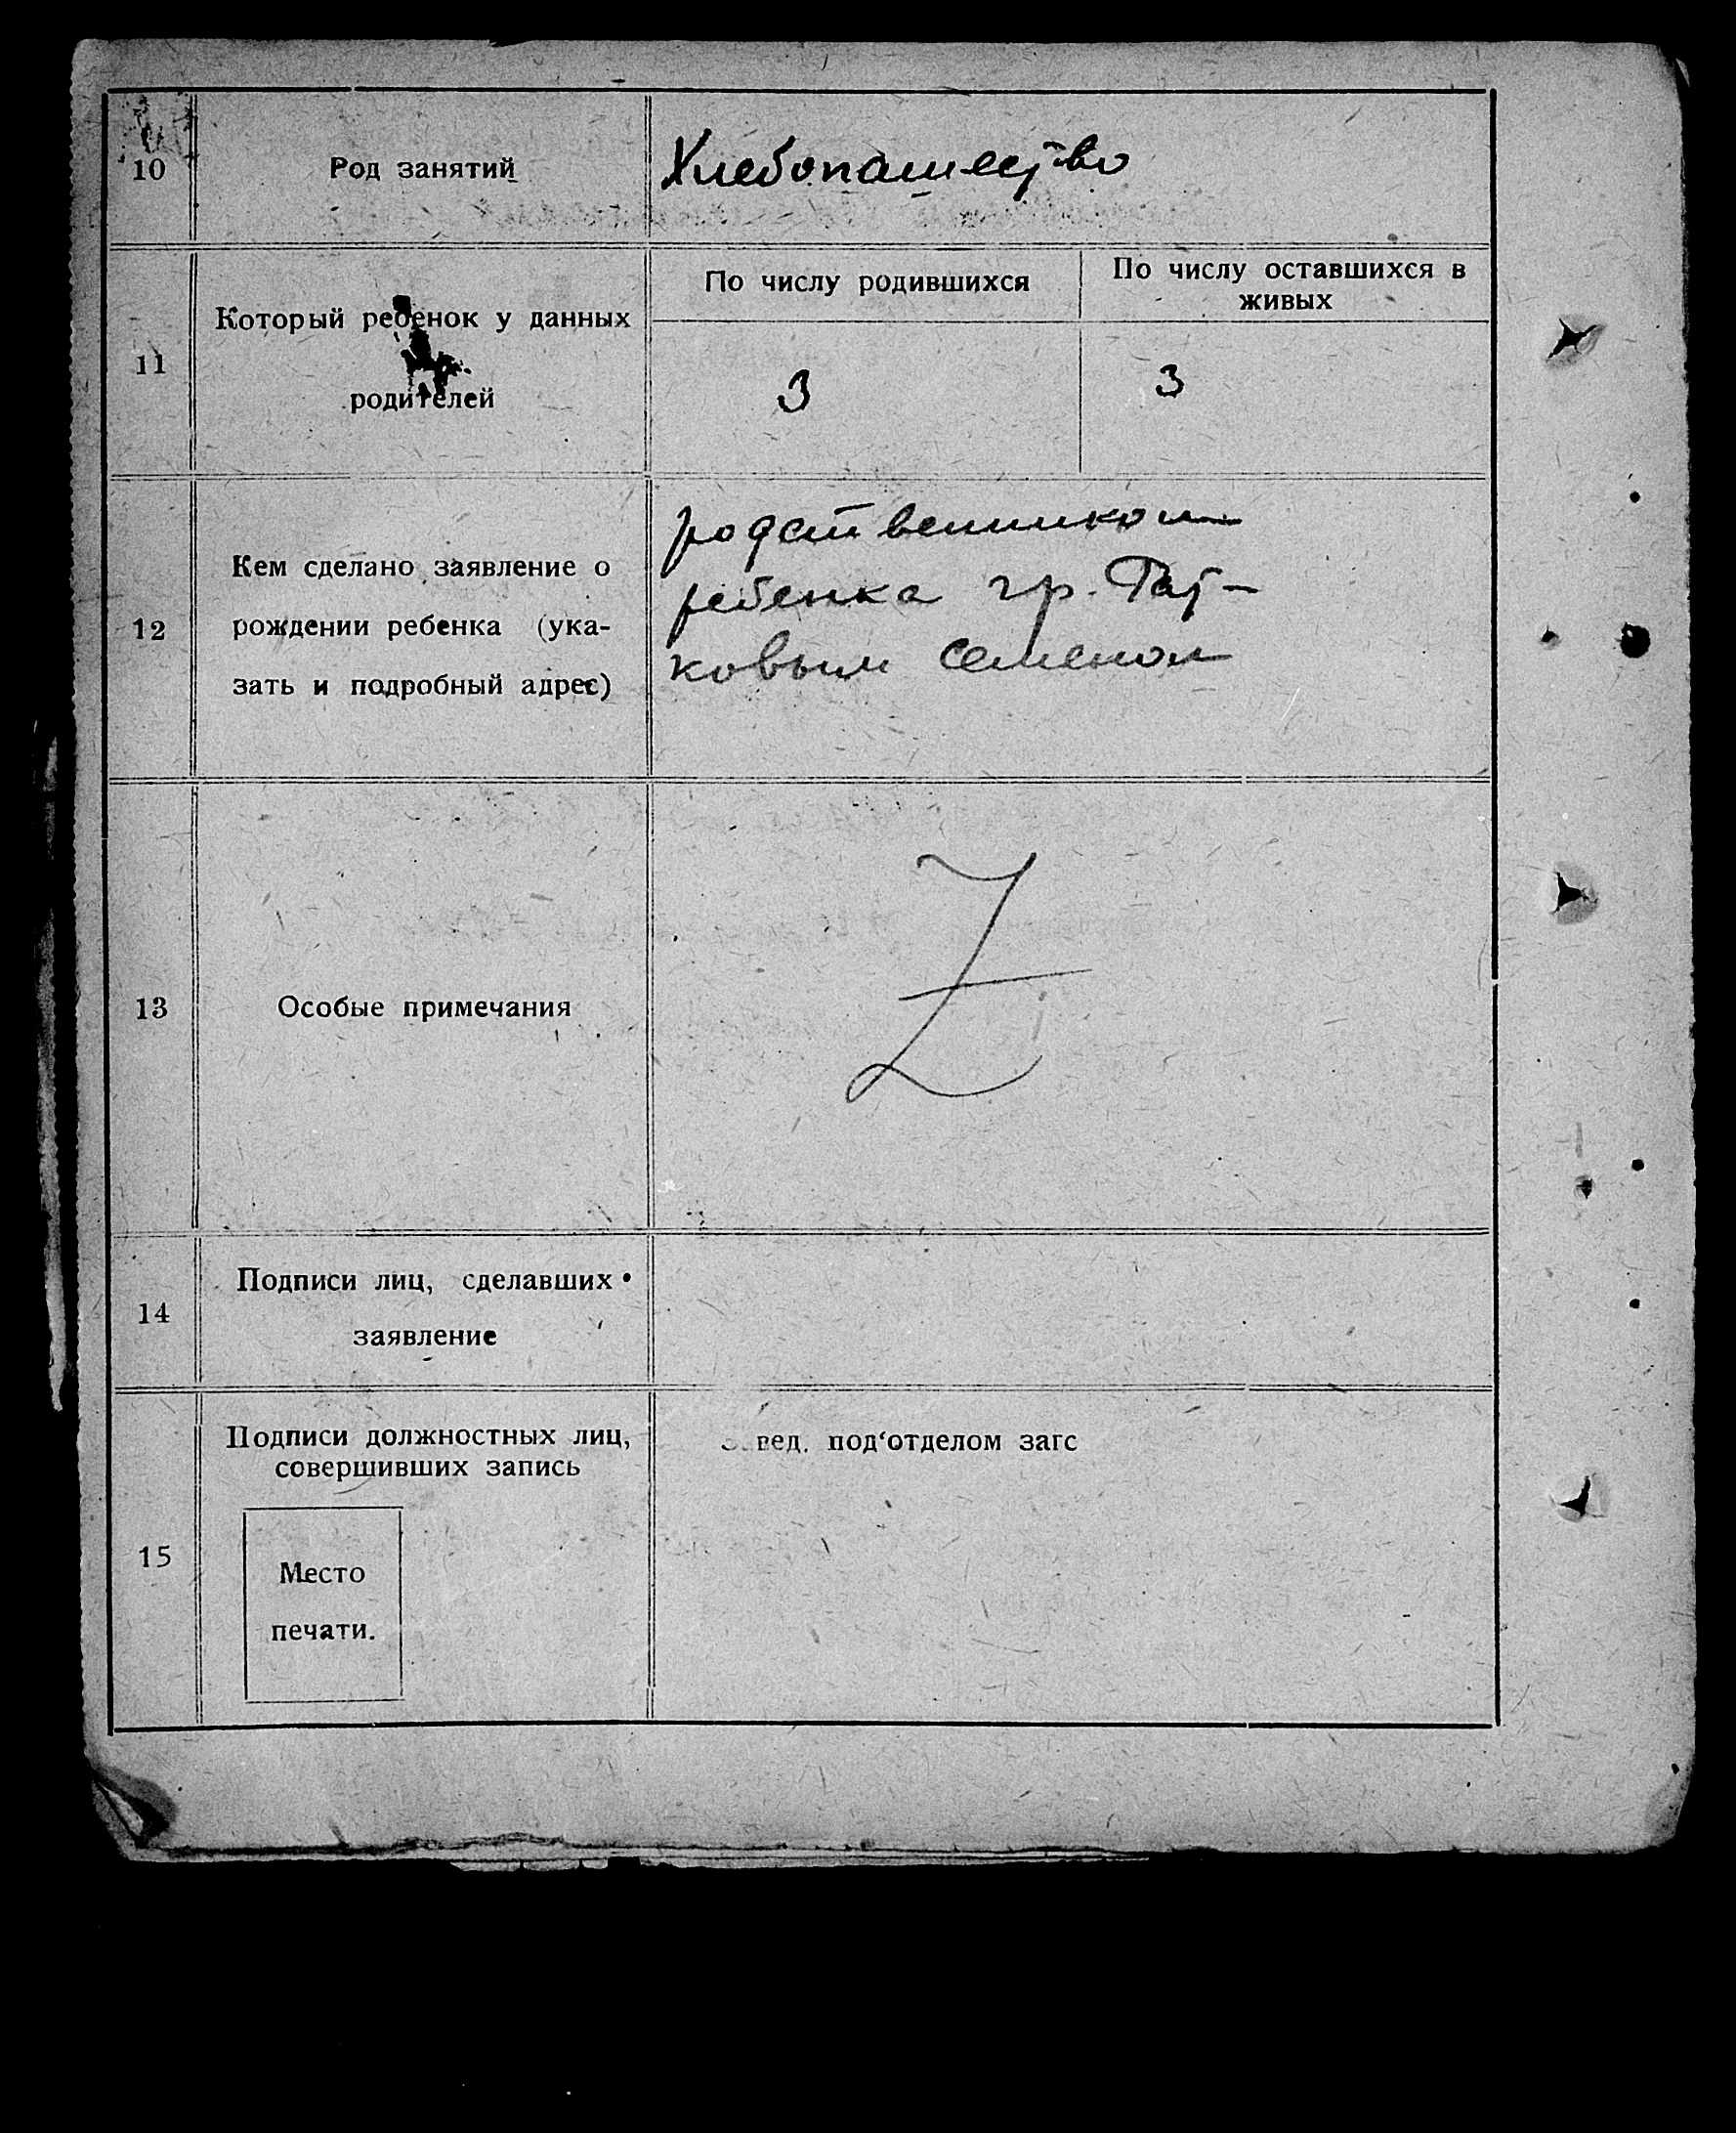 10
Род занятий
Хлебопашество
11
Который ребенок у данных
родителей
По числу родившихся
По числу оставшихся в
живых
3
3
12
Кем сделано заявление о
рождении ребенка (ука-
зать и подробный адрес)
родственником
ребенка гр.
ковым Семеном
13
Особые примечания
Z
14
Подписи лиц, сделавших
заявление
15
Подписи должностных лиц,
совершивших запись
Место
печати.
Завед. под‘отделом загс